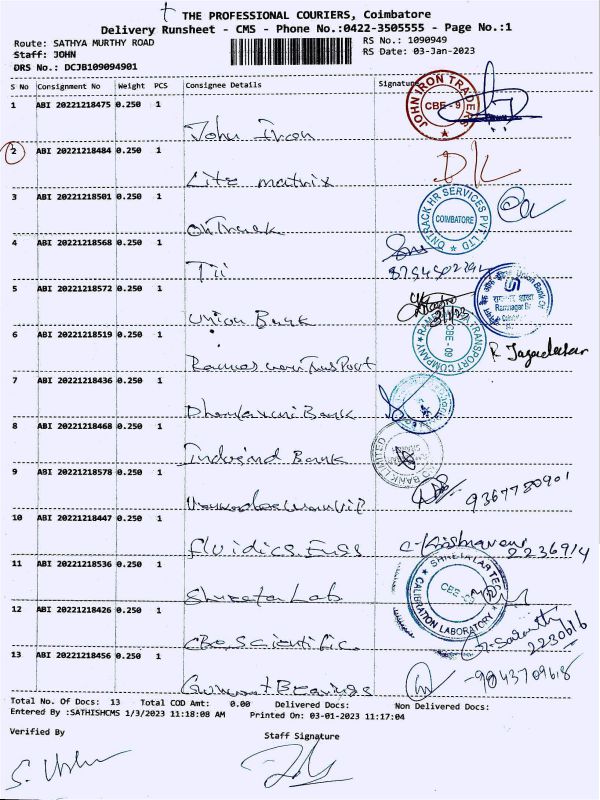 THE PROFESSIONAL COURIERS, Coimbatore
Delivery Runsheet - CMS - Phone No.:0422-3505555 - Page No.:1
Route: SATHYA MURTHY ROAD
RS No.: 1090949
Staff: JOHN
RS Date: 03-Jan-2023
DRS No.: DCJB109094901
S No Consignment No Weight PCS Consignee Details Signature
1 ABI 20221218475 0.250 1
John Iron
JOHN IRON TRADERS
CBE - 9
2 ABI 20221218484 0.250 1
Lite matrix
3 ABI 20221218501 0.250 1
OnTrack
ONTRACK HR SERVICES PVT. LTD
COIMBATORE
4 ABI 20221218568 0.250 1
Tii
5 ABI 20221218572 0.250 1
Union Bank
Union Bank
6 ABI 20221218519 0.250 1
TRANSPORT COMPANY
CBE - 09
7 ABI 20221218436 0.250 1
Bank
8 ABI 20221218468 0.250 1
Indusind Bank
BANK LIMITED
9 ABI 20221218578 0.250 1
9367780901
10 ABI 20221218447 0.250 1
Fluidics Engg
2236914
11 ABI 20221218536 0.250 1
Shreeta Lab
CALIBRATION LABORATORY
12 ABI 20221218426 0.250 1
CBE Scientific
13 ABI 20221218456 0.250 1
Bearings
9043709618
Total No. Of Docs: 13 Total COD Amt: 0.00 Delivered Docs: Non Delivered Docs:
Entered By :SATHISHCMS 1/3/2023 11:18:08 AM Printed On: 03-01-2023 11:17:04
Verified By
Staff Signature